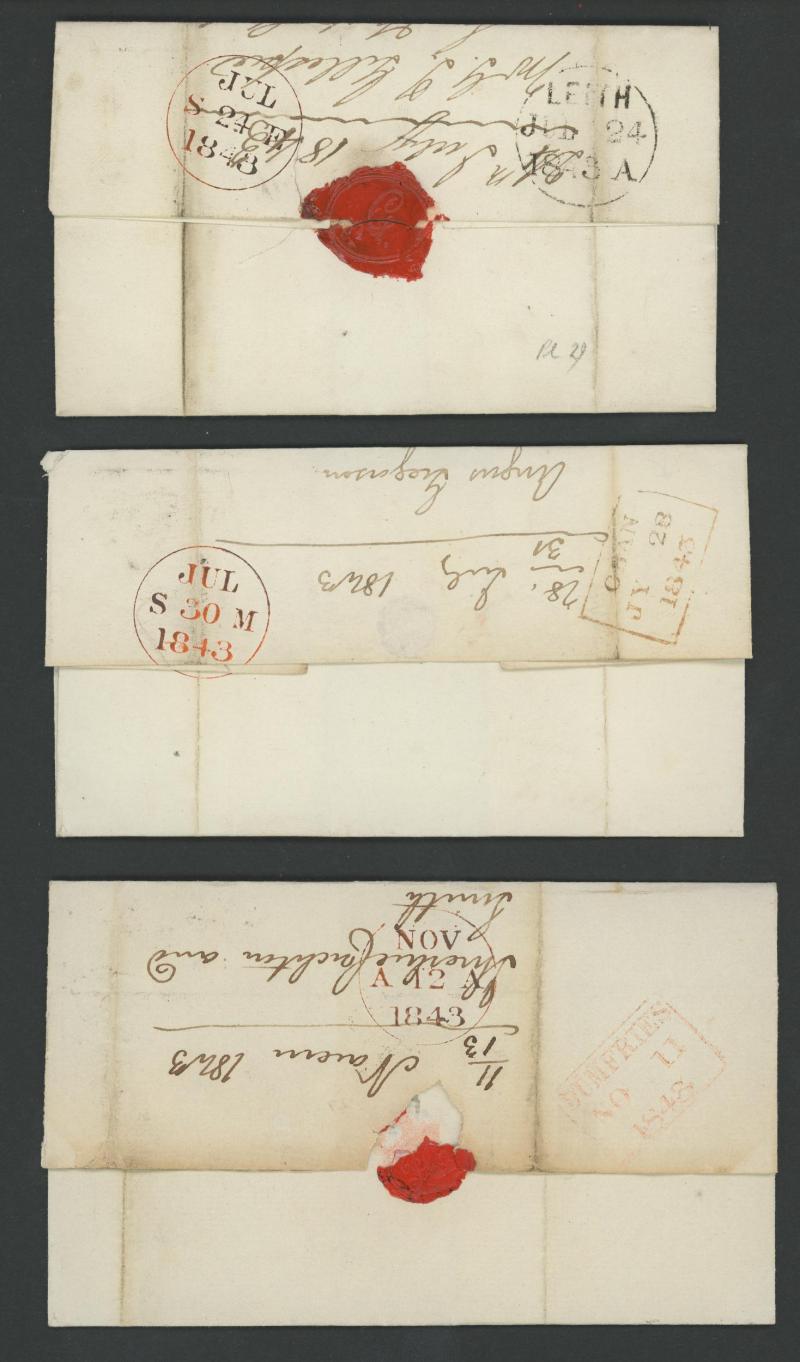 JUL
S 24 E
1843
LEITH
JUL 24
1843 A
July 1843
Pl 29
Angus Gregorson
28 July 1843
31
OBAN
JY 28
1843
JUL
S 30 M
1843
Smith
and
NOV
A 12 A
1843
11 1843
13
DUMFRIES
NO 11
1843